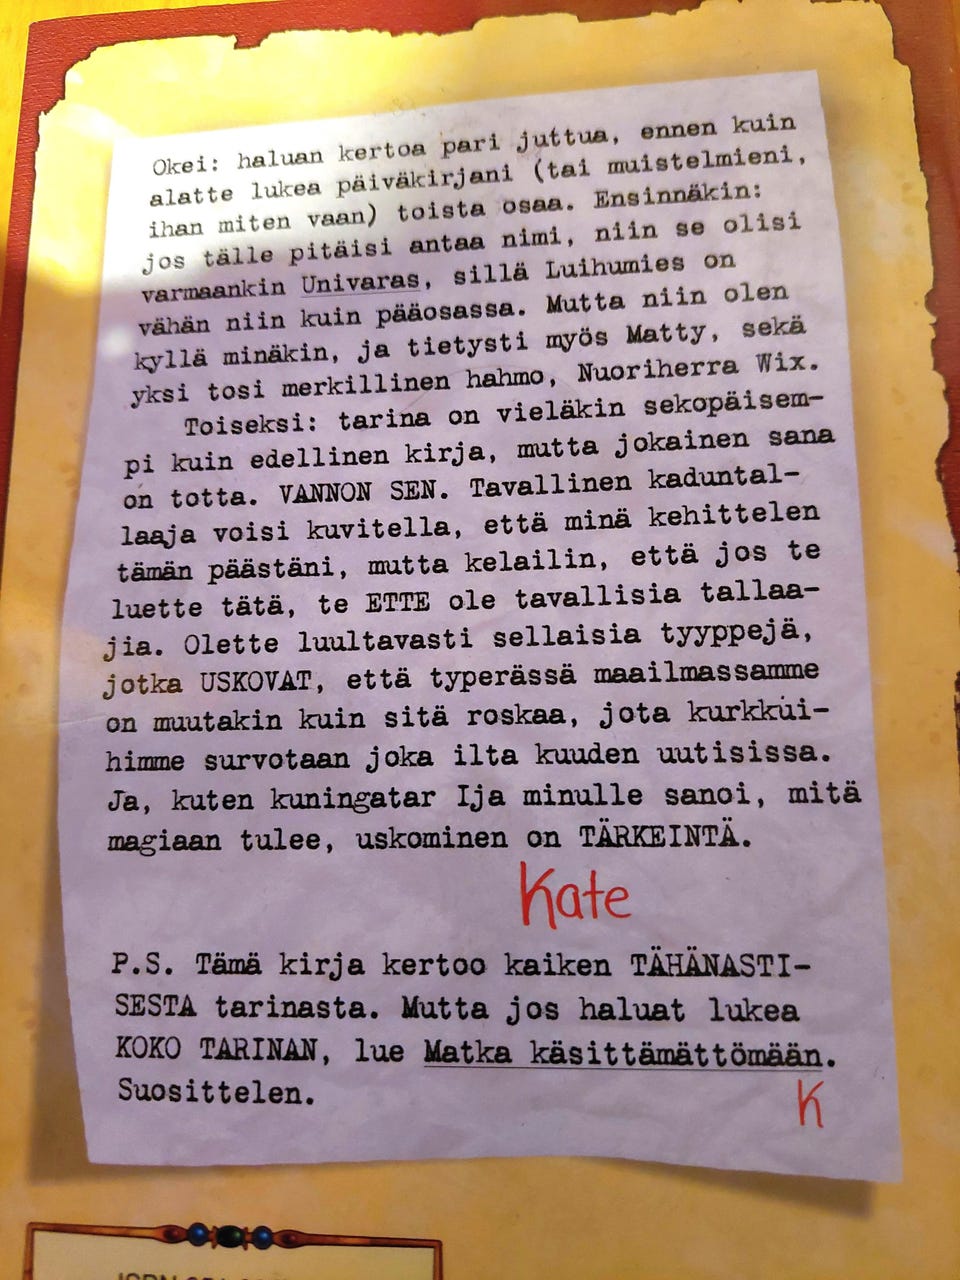 Okei: haluan kertoa pari juttua, ennen kuin
alatte lukea päiväkirjani (tai muistelmieni,
ihan miten vaan) toista osaa. Ensinnäkin:
jos tälle pitäisi antaa nimi, niin se olisi
varmaankin Univaras, sillä Luihumies on
vähän niin kuin pääosassa. Mutta niin olen
kyllä minäkin, ja tietysti myös Matty, sekä
yksi tosi merkillinen hahmo, Nuoriherra Wix.
Toiseksi: tarina on vieläkin sekopäisem-
pi kuin edellinen kirja, mutta jokainen sana
on totta. VANNON SEN. Tavallinen kaduntal-
laaja voisi kuvitella, että minä kehittelen
tämän päästäni, mutta kelailin, että jos te
luette tätä, te ETTE ole tavallisia tallaa-
jia. Olette luultavasti sellaisia tyyppejä,
jotka USKOVAT, että typerässä maailmassamme
on muutakin kuin sitä roskaa, jota kurkkui-
himme survotaan joka ilta kuuden uutisissa.
Ja, kuten kuningatar Ija minulle sanoi, mitä
magiaan tulee, uskominen on TÄRKEINTÄ.
Kate
P.S. Tämä kirja kertoo kaiken TÄHÄNASTI-
SESTA tarinasta. Mutta jos haluat lukea
KOKO TARINAN, lue Matka käsittämättömään.
Suosittelen.
K